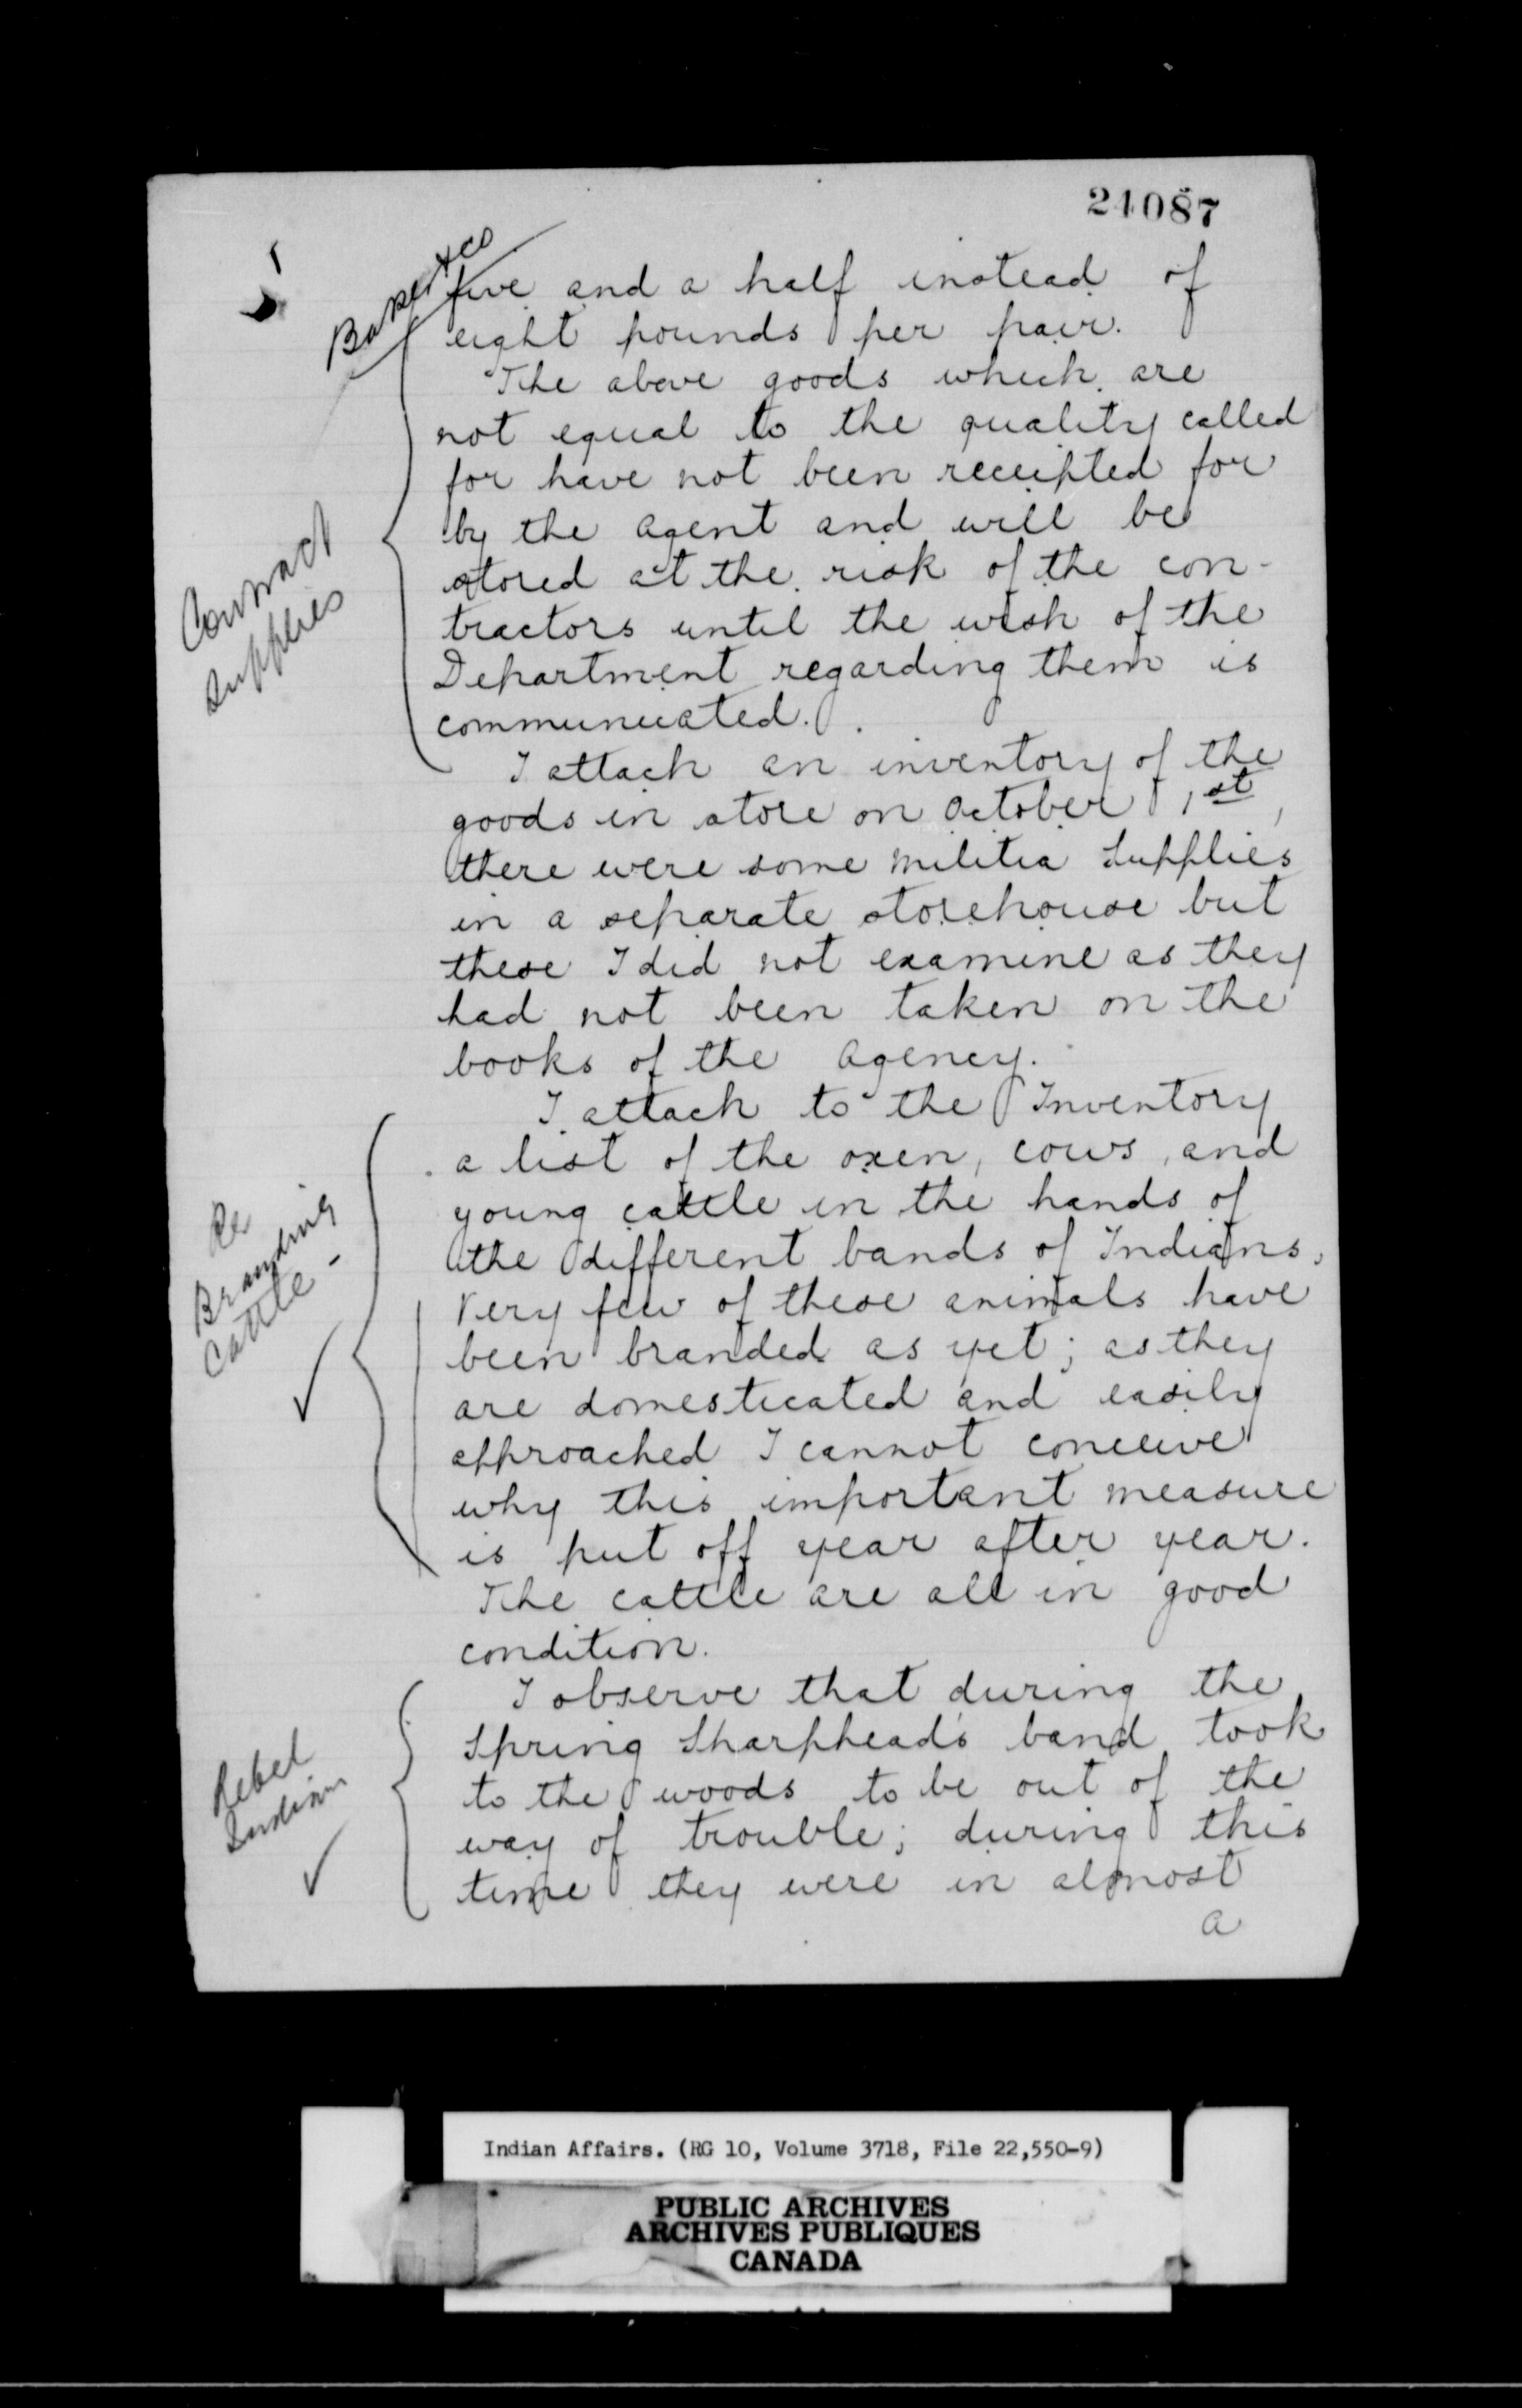 21087
Baker & Co
five and a half instead of
eight pounds per pair.
The above goods which are
not equal to the quality called
for have not been receipted for
by the Agent and will be
stored at the risk of the con-
tractors until the wish of the
Department regarding them is
communicated.
Contract
Supplies
I attach an inventory of the
goods in store on October 1st,
there were some Militia Supplies
in a separate storehouse but
these I did not examine as they
had not been taken on the
books of the Agency.
I attach to the Inventory
a list of the oxen, cows, and
young cattle in the hands of
the different bands of Indians,
Very few of these animals have
been branded as yet; as they
are domesticated and easily
approached I cannot conceive
why this important measure
is put off year after year.
Re
Branding
Cattle -
The cattle are all in good
condition.
I observe that during the
Spring Sharphead's band took
to the woods to be out of the
way of trouble; during this
time they were in almost
a
Rebel
Indian
Indian Affairs. (RG 10, Volume 3718, File 22,550-9)
PUBLIC ARCHIVES
ARCHIVES PUBLIQUES
CANADA